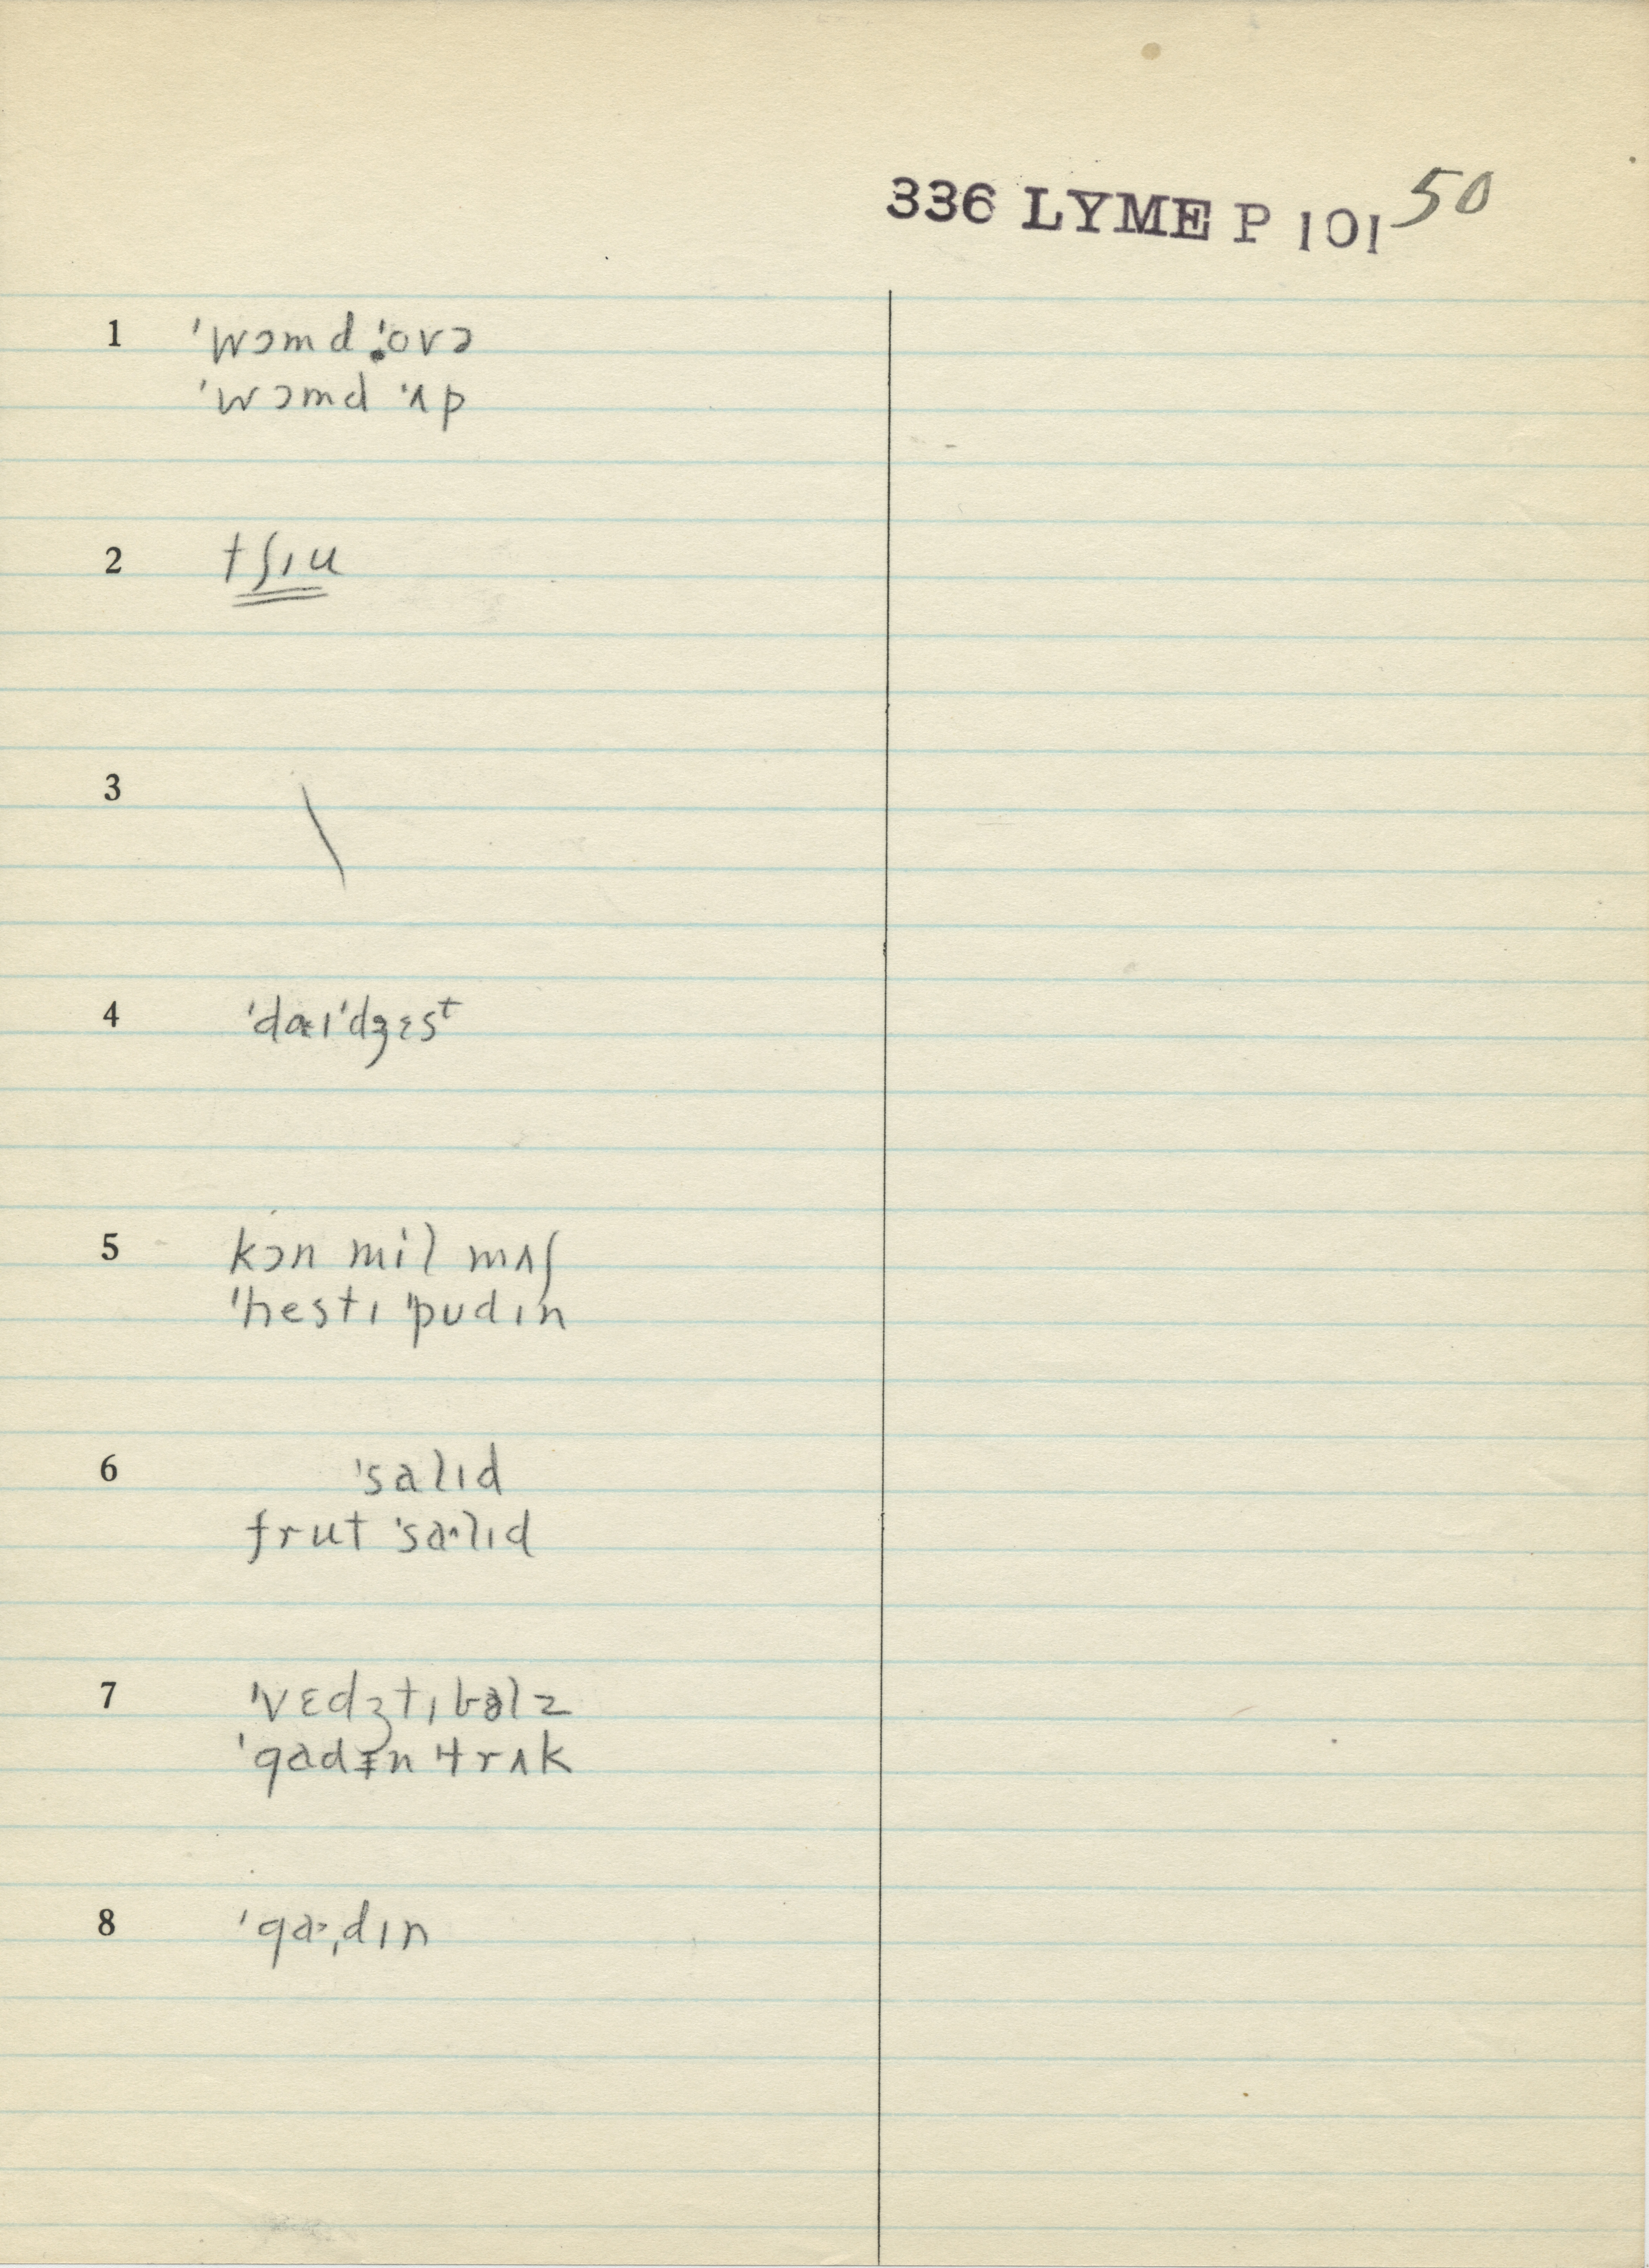 336 LYME P 101 50
1 ˈwɔmd ˈovə
ˈwɔmd ˈʌp
2 tʃɪu
3 \
4 ˈdaɪˈdʒɛst
5 kɔn mil mʌʃ
ˈhestɪ ˈpudɪn
6 ˈsalɪd
frut ˈsaˑlɪd
7 ˈvɛdʒtɪbəlz
ˈgadɪn trʌk
8 ˈgaˑˌdɪn